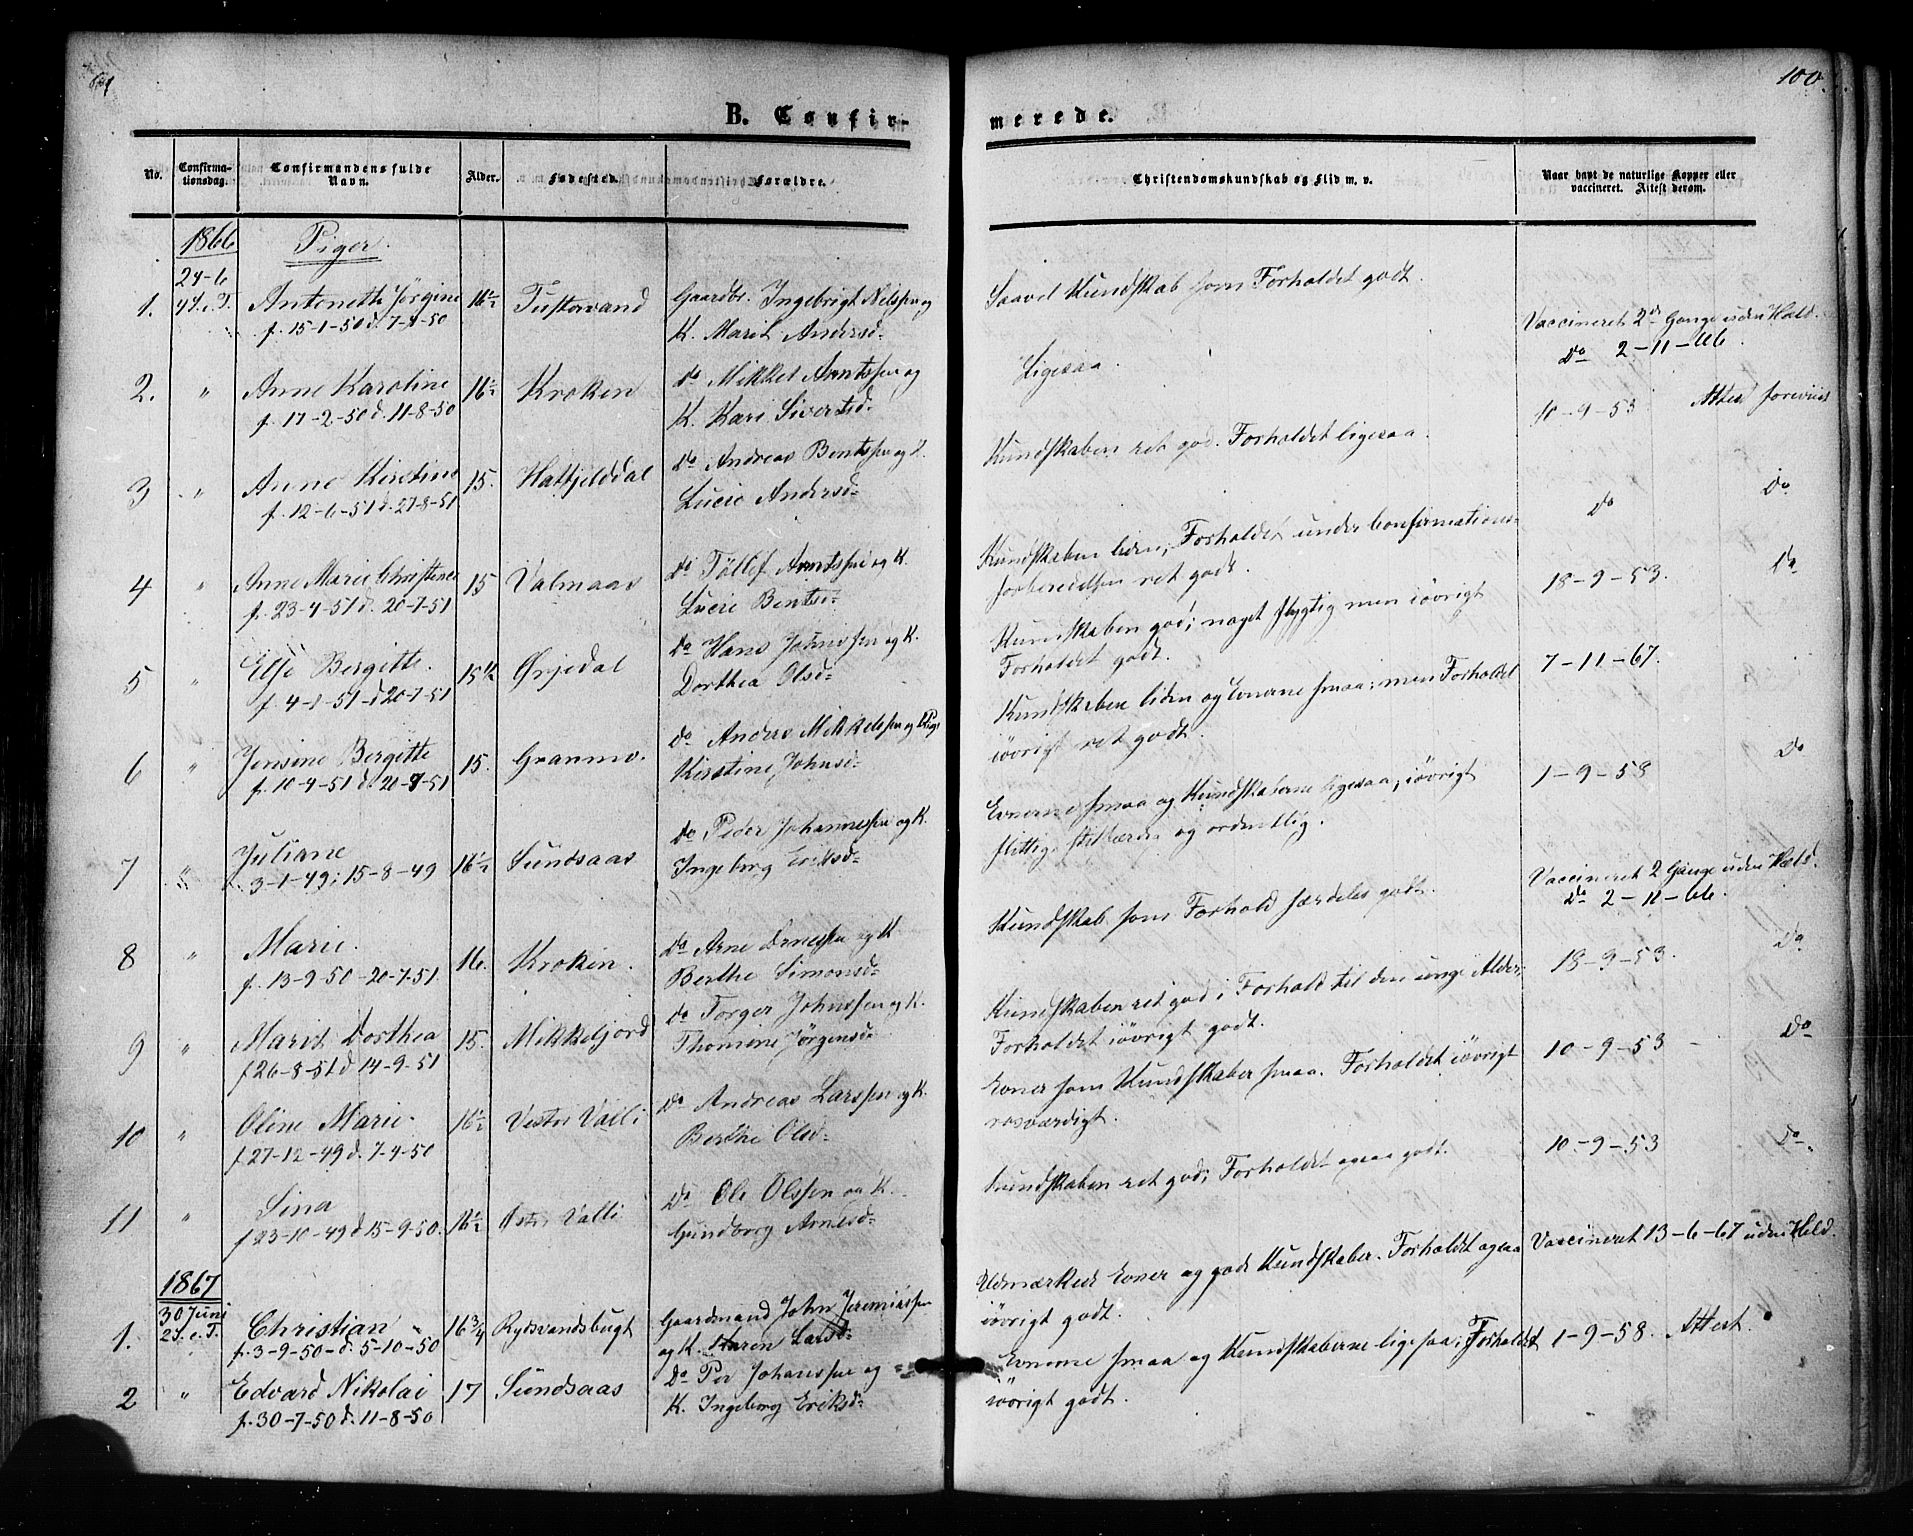 100.
B. Confir-
merede.
No.
Confirma-
tionsdag.
Confirmandens fulde
Navn.
Alder.
Fødested.
Forældre.
Christendomskundskab og Flid m. v.
Naar havt de naturlige Kopper eller
vaccineret. Attest derom.
1866 Piger.
24-6
4 S. e. T.
1. Antonette Jørgine 16½ Tustervand Gaardbr. Ingebrigt Nilssen og
f. 15-1-50 d. 7-4-50 K. Marit Andersd.
Saavel Kundskab som Forholdet godt.
Vaccineret 2de Gange uden Held.
Do 2-11-66.
2. " Anne Karoline 16½ Kroken do Mikkel Arntssen og
f. 17-2-50 d. 11-8-50 K. Kari Sivertsd.
Ligesaa.
10-9-53 Attest foreviist
3 " Anne Kirstine 15. Hatfjelddal do Andreas Bentssen og K.
f. 12-6-51 d. 27-8-51 Lucie Andersd=
Kundskaben ret god. Forholdet ligesaa.
Do Do
4 " Anne Marie Christine 15 Valmaas do Tøllef Arntssen og K.
f. 23-4-51 d. 20-7-51 Lucie Bentsd=
Kundskaben liden, Forholdet under Confirmations-
forberedelsen ret godt.
18-9-53. Do
5 " Else Bergitte. 15½ Ørjedal Do Hans Johnssen og K.
f. 4-1-51 d 20-7-51 Dorthea Olsd=
Kundskaben god; noget flygtig men iøvrigt
Forholdet godt.
7-11-67.
6 " Jensine Bergitte 15. Granmo. do Anders Mikkelssen og Pige
f. 10-4-51 d. 20-7-51 Kirstine Johnsd=
Kundskaben liden og Evnerne smaa; men Forholdet
iøvrigt ret godt.
1-9-58 Do
7 " Juliane 16½ Sundsaas do Peder Johannessen og K.
3-1-49; 15-8-49 Ingeborg Eriksd=
Evnerne smaa og Kundskaberne ligesaa, iøvrigt
flittig, stilfærdig og ordentlig.
Vaccineret 2 Gange uden Held.
Do 2-11-66.
8 " Marie. 16. Kroken. do Arne Arnessen og K
f. 13-9-50 - 20-7-51. Berthe Simonsd=
Kundskab som Forhold særdeles godt.
18-9-53. Do
9 " Marit Dorthea 15. Mikkeljord do Torger Johnssen og K.
f 26-8-51 d 14-9-51 Thomine Jørgensd=
Kundskaben ret god i Forhold til den unge Alder;
Forholdet iøvrigt godt.
10-9-53 - Do
10 " Oline Marie. 16½ Vestre Valli do Andreas Larssen og K.
f 27-12-49 d. 7-4-50 Berthe Olsd=
Evner som Kundskaber smaa. Forholdet iøvrigt
rosværdigt.
10-9-53 Do
11 " Sina 16½ Østre Valli Do Ole Olssen og K.
f 23-10-49 d 15-9-50. Gundborg Arnesd=
Kundskaben ret god; Forholdet ogsaa godt.
1867
30 Juni
2 S. e. T.
1. Christian 16¾ Rydsvandsbugt Gaardmand John Jeremiassen
f. 3-9-50 - d. 5-10-50 og K. Karen Larsd=
Udmærkede Evner og gode Kundskaber. Forholdet ogsaa
iøvrigt godt.
Vaccineret 13-6-67 uden Held.
2 " Edvard Nikolai 17 Sundsaas Do Per Johanssen og
f. 30-7-50 d. 11-8-50 K. Ingeborg Eriksd=
Evnerne smaa og Kundskaberne ligesaa; Forholdet
iøvrigt godt.
1-9-58. Attest.